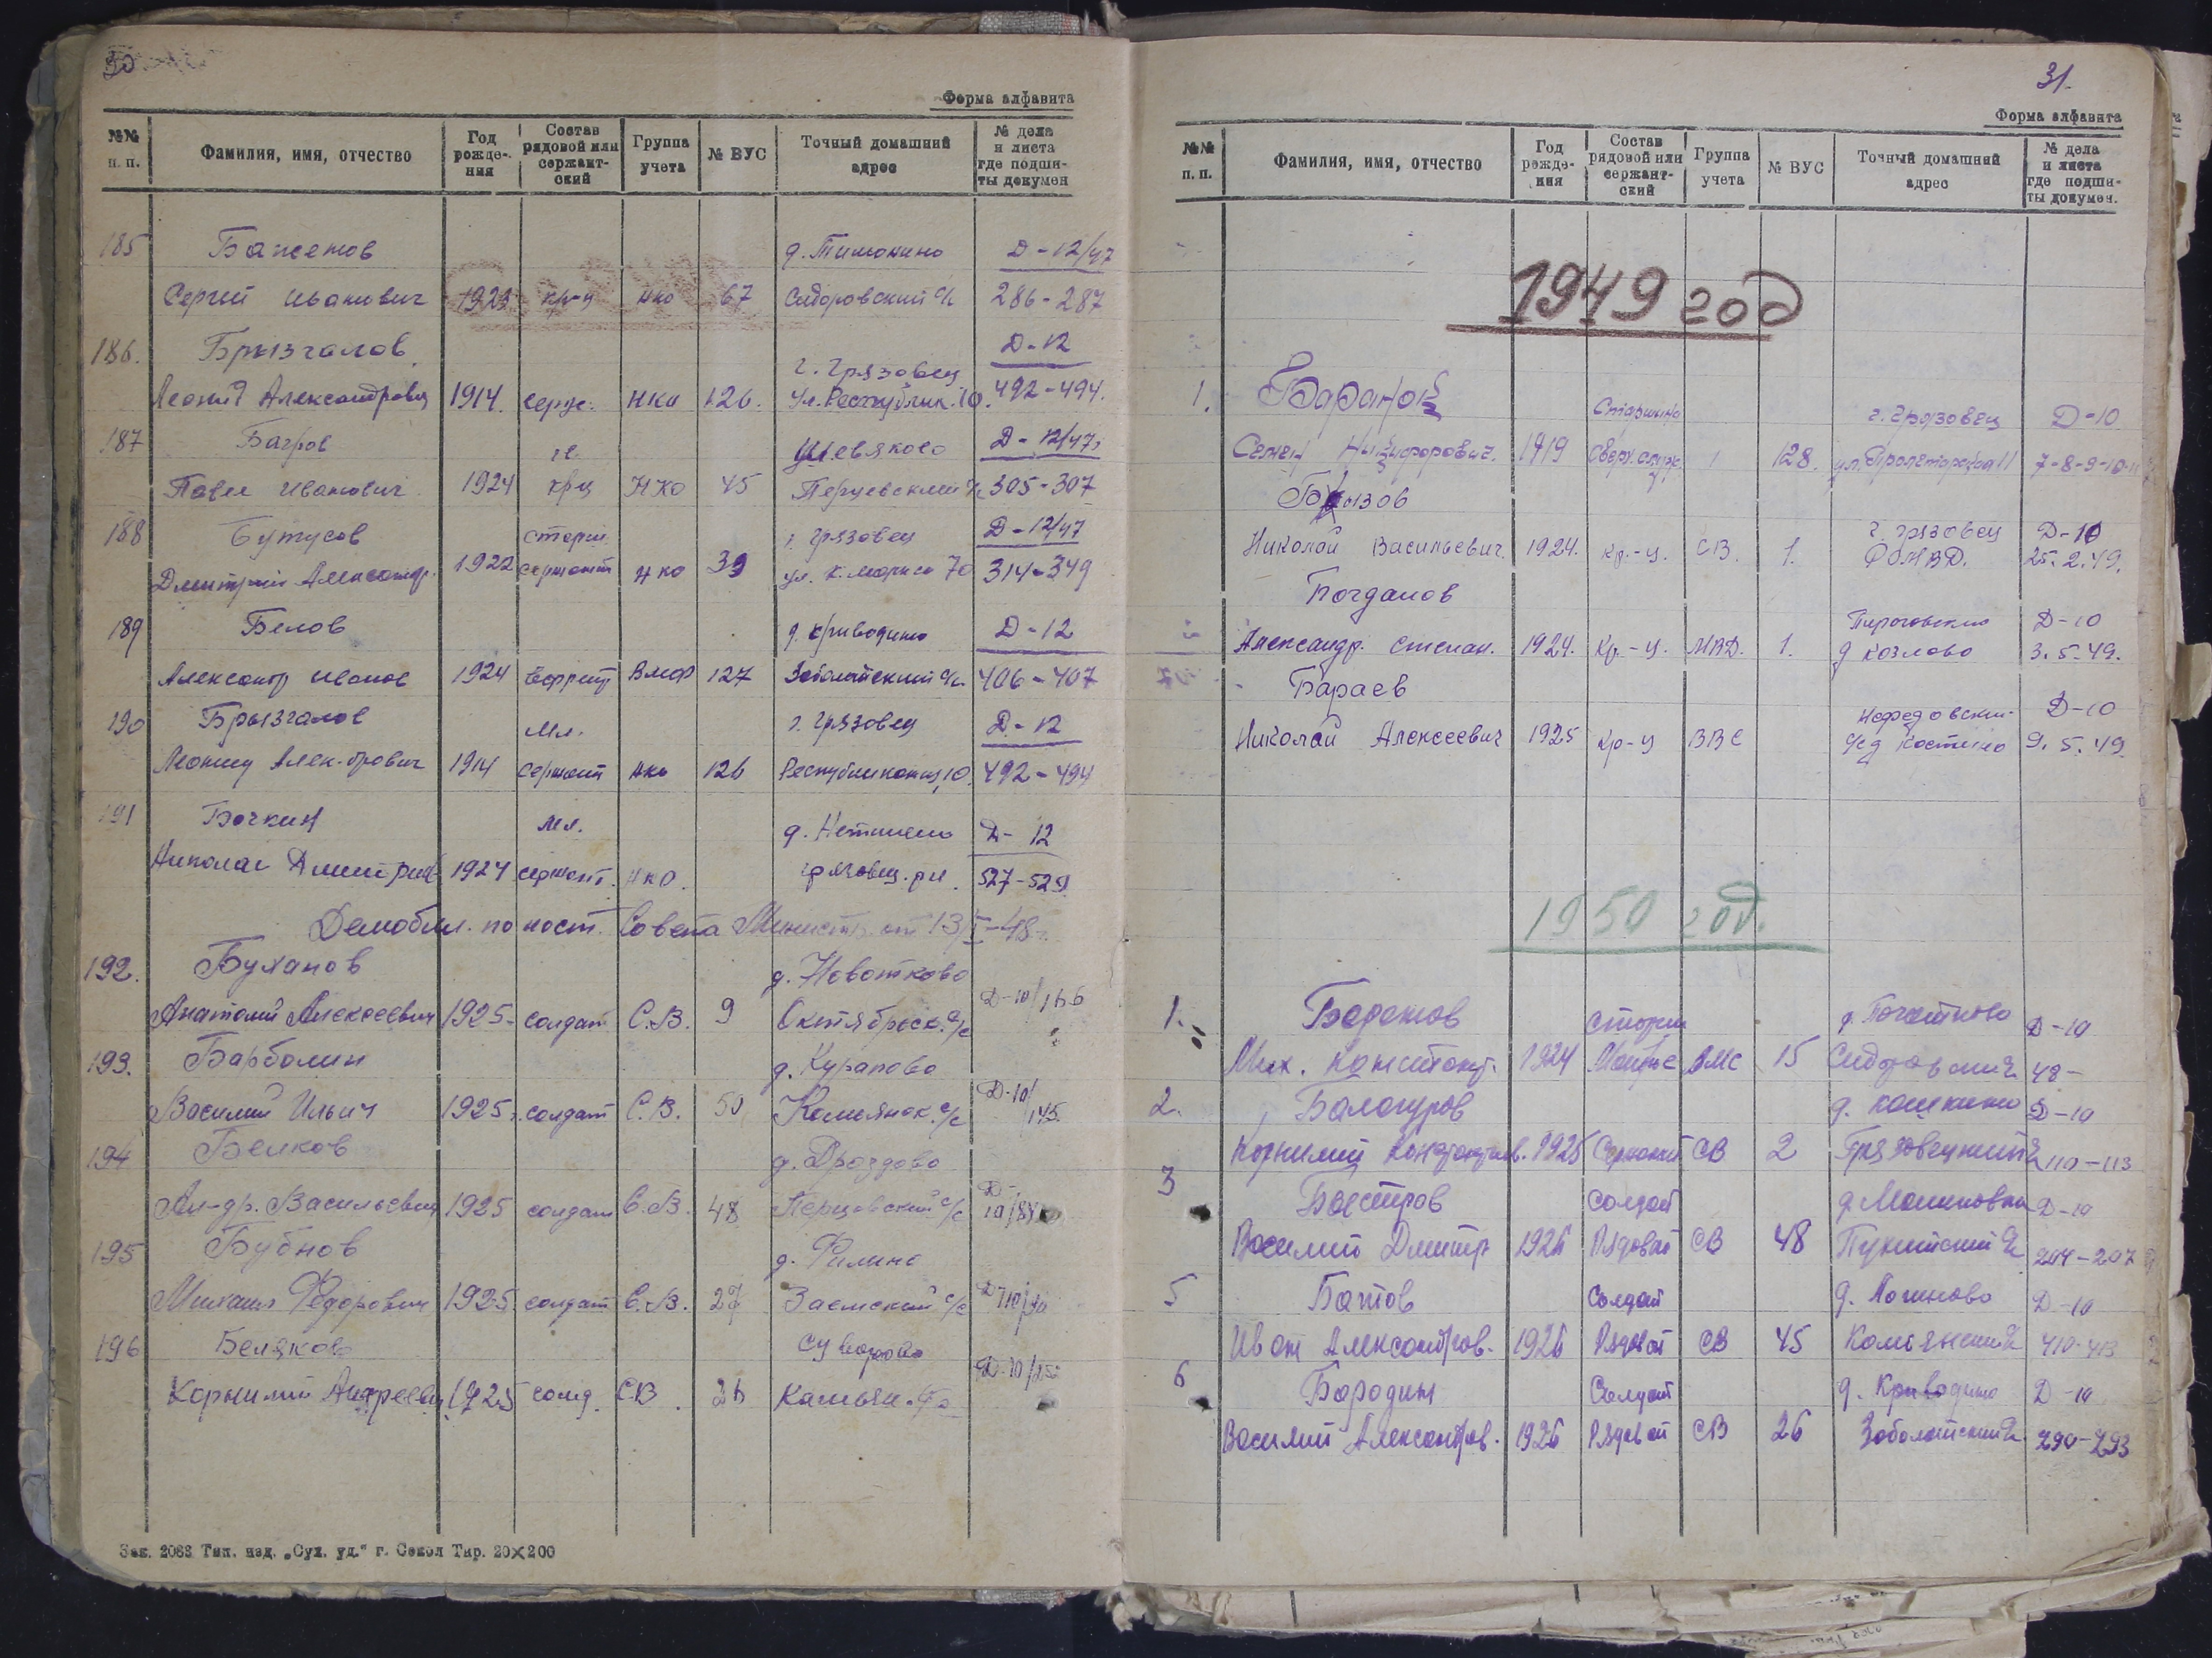 30
Форма алфавита
№№ п. п. Фамилия, имя, отчество Год рожде-ния Состав рядовой или сержант-ский Группа учета № ВУС Точный домашний адрес № дела и листа где подши-ты докумен
185 Баженов д. Тимонино Д-12/47
Сергей Иванович 1923 кр-ц нко 67 Сидоровский с/с 286-287
186. Брызгалов г. Грязовец Д-12
Леонид Александрович 1914. серж. НКО 126. ул. Республик. 10. 492-494.
187 Багров Шевяково Д-12/47
Павел Иванович 1924 крц НКО 45 Перцевский с/с 305-307
188 Бутусов старш г. Грязовец Д-12/47
Дмитрий Александр. 1922 сержант нко 39 ул. К. Маркса 70 314-349
189 Белов д. Криводино Д-12
Александр Иванов 1924 Ефрейт ВМФ 127 Заболотский с/с 406-407
190 Брызгалов Мл. г. Грязовец Д-12
Леонид Алек-дрович 1914 сержант нко 126 Республиканц, 10. 492-494
191 Бочкин Мл. д. Д-12
Николай Дмитриев 1924 сержант. НКО. Грязовец. рн. 527-529
Демобил. по пост. Совета Министр. от 13/I-48г.
192. Буханов д. Новотково
Анатолий Алексеевич 1925- солдат С.В. 9 Октябрьск. с/с Д-10/166
193. Барболин д. Курапово
Василий Ильич 1925г. солдат С.В. 50 Камьянск. с/с Д-10/145
194 Белков д. Дроздово
Ал-др. Васильевич 1925 солдат С.В. 48 Перцовский с/с Д-10/88
195 Бубнов д. Филино
Михаил Федорович 1925 солдат С.В. 27 Заемский с/с Д-10/40
196 Беляков Суворово
Корнилий Андреевич 1925 солд. СВ. 26 Камьян. с/с Д-10/25
Зак. 2083 Тип. изд. „Сух. уд." г. Сокол Тир. 20×200
31.
Форма алфавита
№№ п. п. Фамилия, имя, отчество Год рожде-ния Состав рядовой или сержант-ский Группа учета № ВУС Точный домашний адрес № дела и листа где подши-ты докумен.
1949 год
1. Баранов Старшина г. Грязовец Д-10
Семен Никифорович. 1919 Сверх.служ. 1 128. ул. Пролетарская 11 7-8-9-10-11
Брызов г. Грязовец Д-10
Николай Васильевич. 1924. кр.-ц. СВ. 1. РОМВД. 25.2.49.
Богданов Пироговский Д-10
Александр. Степан. 1924. Кр.-ц. МВД. 1. д Козлово 3.5.49.
Бараев Нефедовский- Д-10
Николай Алексеевич 1925 Кр-ц ВВС с/с д Костино 9.5.49.
1950 год.
1. старш Д-10
Мих. Констант. 1924 Матрос ВМС 15 Сидоровский с/с 48-
2. Балагуров д. Кошкино Д-10
Корнилий Константинов. 1925 Сержант СВ 2 Грязовецкий с/с 110-113
3 Быстров солдат д. Малиновка Д-10
Василий Дмитр 1926 Рядовой СВ 48 с/с 204-207
5 Батов Солдат д. Логиново Д-10
Иван Александров. 1926 Рядовой СВ 45 Камьянский с/с 410-413
6 Бородин Солдат д. Криводино Д-10
Василий Александров. 1926 Рядовой СВ 26 Заболотский с/с 290-293